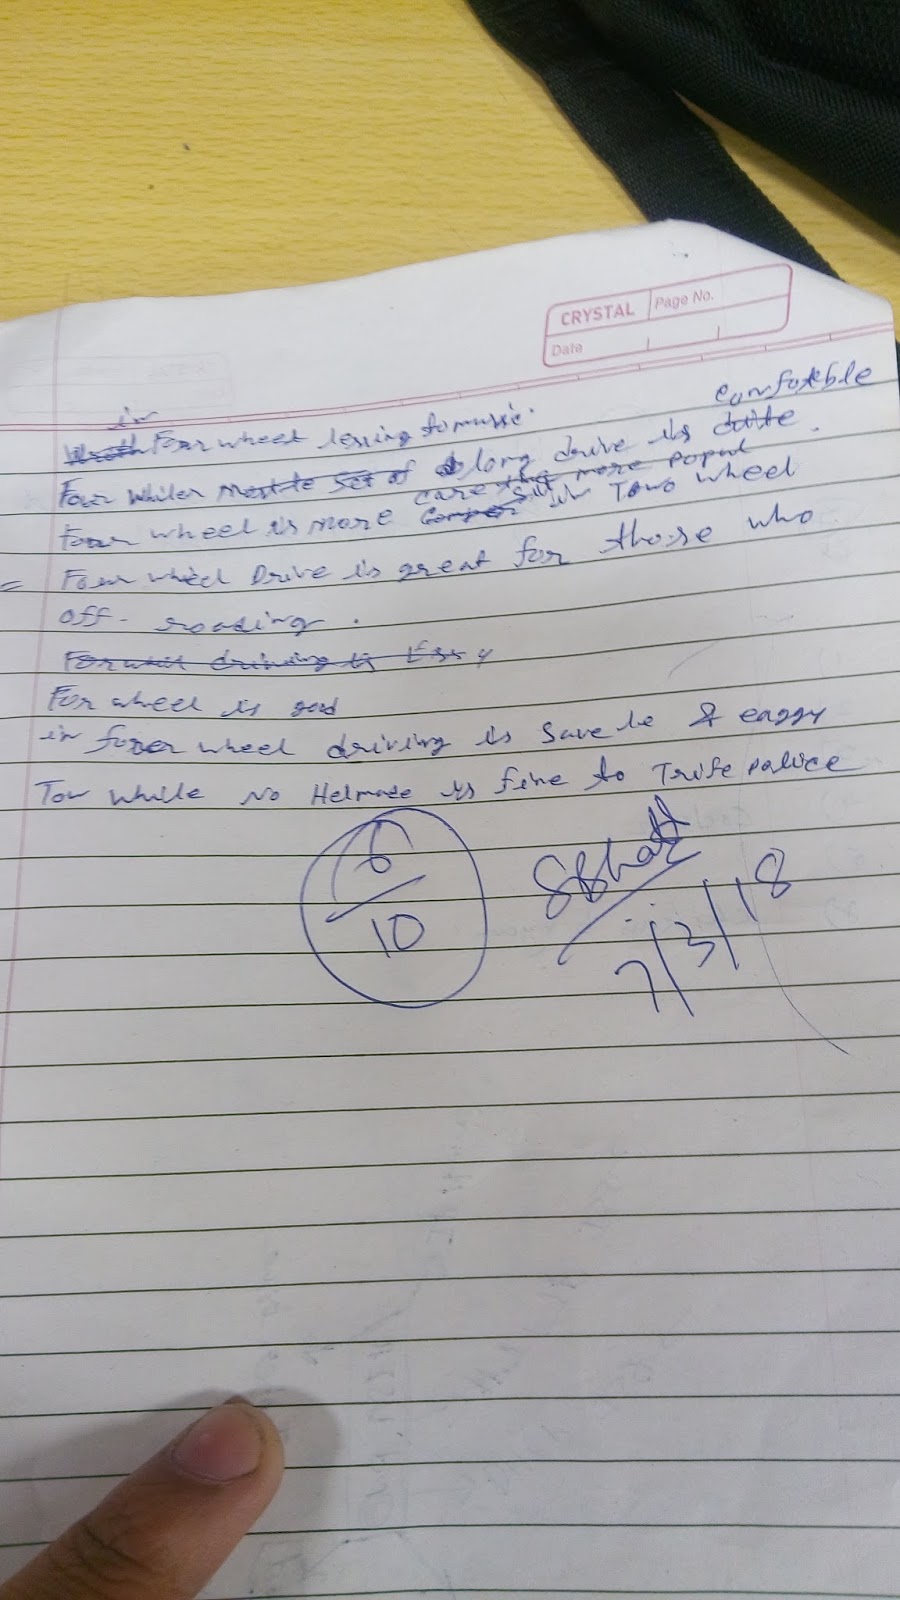 CRYSTAL
Page No.
Date
in
Four wheel lessing to music.
comfoteble
Four Whiler long drive is
Four wheel is more care in Towo wheel
= Four wheel Drive is great for those who
off-roading.
For wheel is good
in four wheel driving is Save le & eaggy
Tow While No Helmade is fine to Trife police
6/10
SBhatt
7/3/18